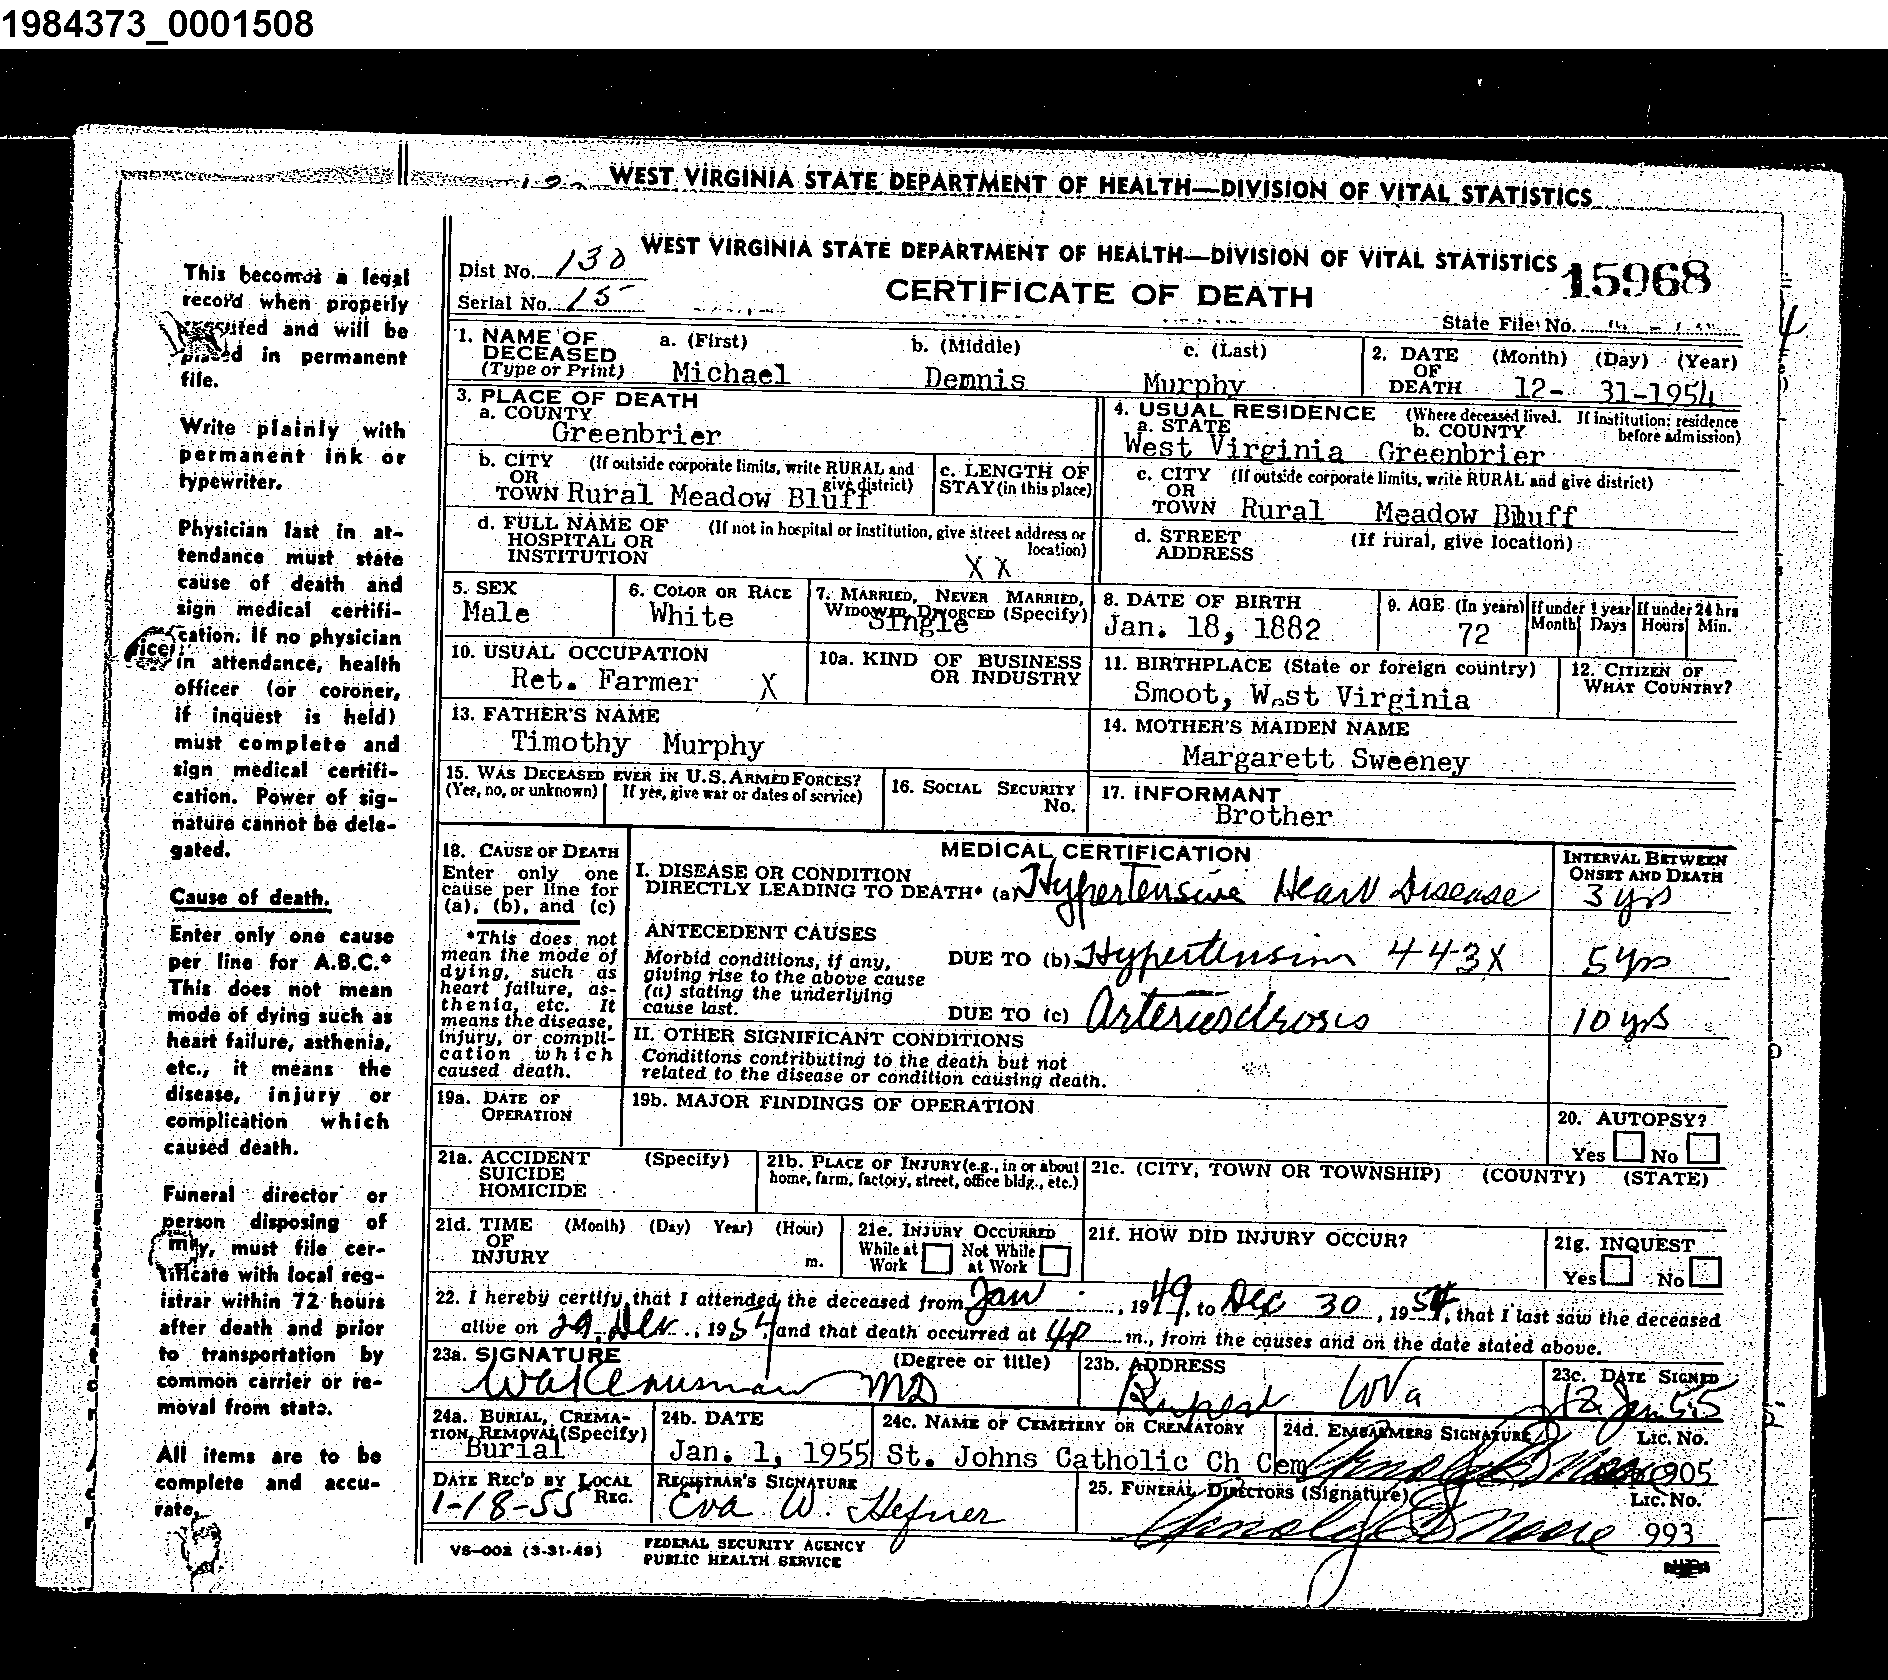 1984373_0001508
WEST VIRGINIA STATE DEPARTMENT OF HEALTH—DIVISION OF VITAL STATISTICS
WEST VIRGINIA STATE DEPARTMENT OF HEALTH—DIVISION OF VITAL STATISTICS
Dist No. 130
15968
Serial No. 15
CERTIFICATE OF DEATH
State File No.
1. NAME OF DECEASED (Type or Print)
a. (First) Michael
b. (Middle) Demnis
c. (Last) Murphy
2. DATE OF DEATH (Month) (Day) (Year)
12- 31-1954
3. PLACE OF DEATH
a. COUNTY
Greenbrier
4. USUAL RESIDENCE (Where deceased lived. If institution: residence before admission)
a. STATE b. COUNTY
West Virginia Greenbrier
b. CITY OR TOWN (If outside corporate limits, write RURAL and give district)
Rural Meadow Bluff
c. LENGTH OF STAY (in this place)
c. CITY OR TOWN (If outside corporate limits, write RURAL and give district)
Rural Meadow Bluff
d. FULL NAME OF HOSPITAL OR INSTITUTION (If not in hospital or institution, give street address or location)
X X
d. STREET ADDRESS (If rural, give location)
5. SEX
Male
6. COLOR OR RACE
White
7. MARRIED, NEVER MARRIED, WIDOWED, DIVORCED (Specify)
Single
8. DATE OF BIRTH
Jan. 18, 1882
9. AGE (In years)
72
If under 1 year
Month Days
If under 24 hrs
Hours Min.
10. USUAL OCCUPATION
Ret. Farmer X
10a. KIND OF BUSINESS OR INDUSTRY
11. BIRTHPLACE (State or foreign country)
Smoot, West Virginia
12. CITIZEN OF WHAT COUNTRY?
13. FATHER'S NAME
Timothy Murphy
14. MOTHER'S MAIDEN NAME
Margarett Sweeney
15. WAS DECEASED EVER IN U.S. ARMED FORCES?
(Yes, no, or unknown) If yes, give war or dates of service)
16. SOCIAL SECURITY No.
17. INFORMANT
Brother
18. CAUSE OF DEATH
Enter only one cause per line for (a), (b), and (c)
*This does not mean the mode of dying, such as heart failure, asthenia, etc. It means the disease, injury, or complication which caused death.
MEDICAL CERTIFICATION
INTERVAL BETWEEN ONSET AND DEATH
I. DISEASE OR CONDITION
DIRECTLY LEADING TO DEATH* (a) Hypertensive Heart Disease 3 yrs
ANTECEDENT CAUSES
Morbid conditions, if any, giving rise to the above cause (a) stating the underlying cause last.
DUE TO (b) Hypertension 443X 5 yrs
DUE TO (c) Arteriosclrosis 10 yrs
II. OTHER SIGNIFICANT CONDITIONS
Conditions contributing to the death but not related to the disease or condition causing death.
19a. DATE OF OPERATION
19b. MAJOR FINDINGS OF OPERATION
20. AUTOPSY?
Yes No
21a. ACCIDENT SUICIDE HOMICIDE (Specify)
21b. PLACE OF INJURY (e.g., in or about home, farm, factory, street, office bldg., etc.)
21c. (CITY, TOWN OR TOWNSHIP) (COUNTY) (STATE)
21d. TIME OF INJURY (Month) (Day) Year) (Hour) m.
21e. INJURY OCCURRED
While at Work Not While at Work
21f. HOW DID INJURY OCCUR?
21g. INQUEST
Yes No
22. I hereby certify that I attended the deceased from Jan, 1949, to Dec 30, 1954, that I last saw the deceased
alive on 29, Dec., 1954, and that death occurred at 4P m., from the causes and on the date stated above.
23a. SIGNATURE (Degree or title)
MD
23b. ADDRESS
Rupert WVa
23c. DATE SIGNED
12 Jan 55
24a. BURIAL, CREMATION, REMOVAL (Specify)
Burial
24b. DATE
Jan. 1, 1955
24c. NAME OF CEMETERY OR CREMATORY
St. Johns Catholic Ch Cem
24d. EMBALMERS SIGNATURE Lic. No.
905
DATE REC'D BY LOCAL REG.
1-18-55
REGISTRAR'S SIGNATURE
Eva W. Hefner
25. FUNERAL DIRECTORS (Signature) Lic. No.
993
VS—002 (3-31-49)
FEDERAL SECURITY AGENCY
PUBLIC HEALTH SERVICE
This becomes a legal
record when properly
executed and will be
placed in permanent
file.
Write plainly with
permanent ink or
typewriter.
Physician last in at-
tendance must state
cause of death and
sign medical certifi-
cation. If no physician
in attendance, health
officer (or coroner,
if inquest is held)
must complete and
sign medical certifi-
cation. Power of sig-
nature cannot be dele-
gated.
Cause of death.
Enter only one cause
per line for A.B.C.*
This does not mean
mode of dying such as
heart failure, asthenia,
etc., it means the
disease, injury or
complication which
caused death.
Funeral director or
person disposing of
must file cer-
tificate with local reg-
istrar within 72 hours
after death and prior
to transportation by
common carrier or re-
moval from state.
All items are to be
complete and accu-
rate.